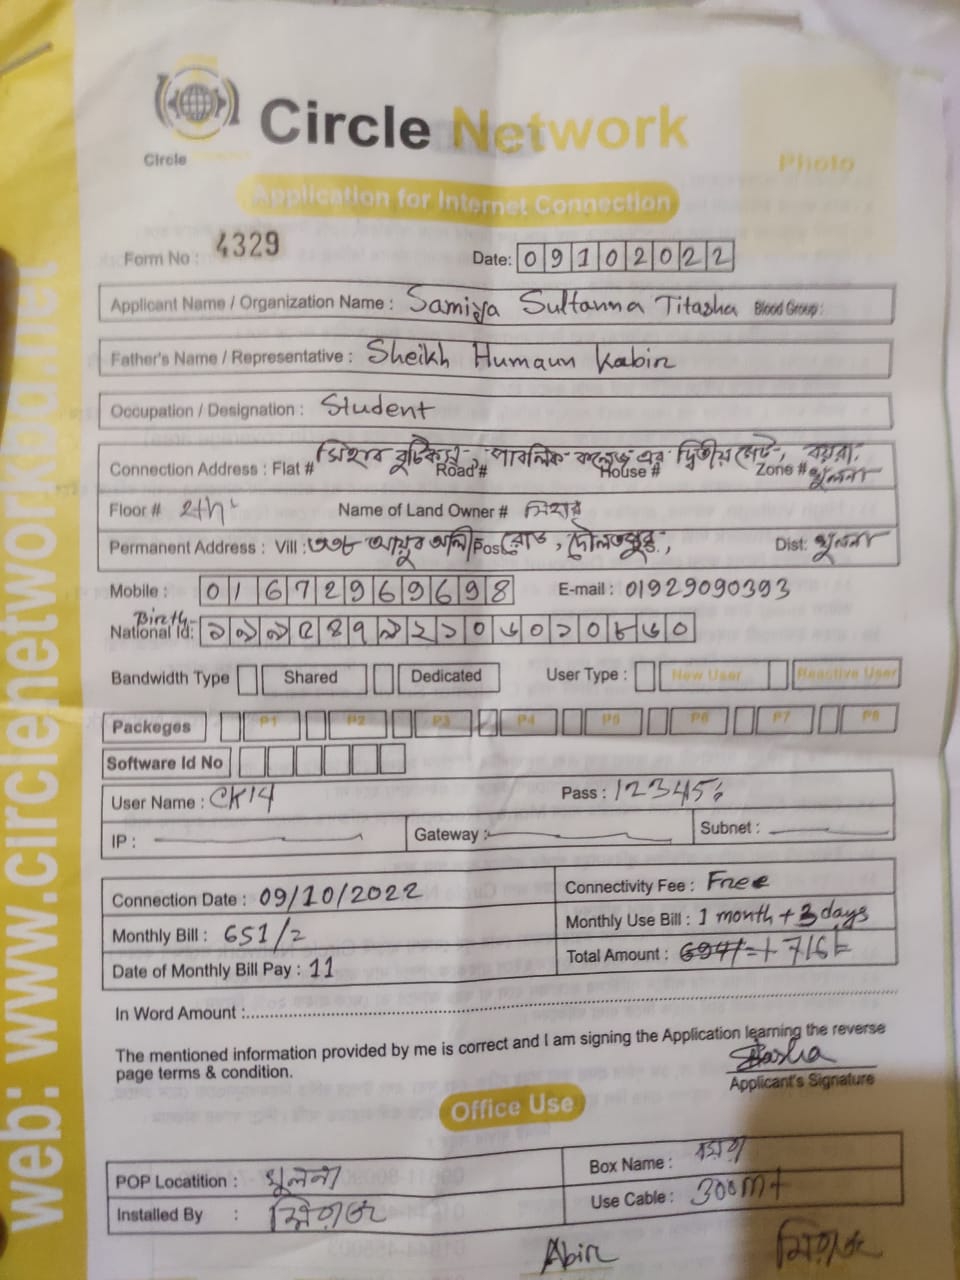 Circle Network
Circle
Photo
Application for Internet Connection
Form No : 4329
Date: 09102022
Applicant Name / Organization Name : Samiya Sultanna Titasha Blood Group:
Father's Name / Representative : Sheikh Humaun Kabir
Occupation / Designation : Student
Connection Address : Flat # সিহাব বুটিকস, পাবলিক কলেজ এর দ্বিতীয় গেট, বয়রা, খুলনা Road # House # Zone #
Floor # 2th Name of Land Owner # সিহাব
Permanent Address : Vill : আয়ুব আলী রোড, দৌলতপুর, Post Dist: খুলনা
Mobile : 01672969698 E-mail : 01929090393
Birth
National Id:
Bandwidth Type Shared Dedicated User Type : New User Reactive User
Packeges P1 P2 P3 P4 P5 P6 P7 P8
Software Id No
User Name : CK14 Pass : 123456
IP : Gateway : Subnet :
Connection Date : 09/10/2022 Connectivity Fee : Free
Monthly Bill : 651/= Monthly Use Bill : 1 month + 3 days
Date of Monthly Bill Pay : 11 Total Amount : 694/= + 716/=
In Word Amount :
The mentioned information provided by me is correct and I am signing the Application learning the reverse
page terms & condition.
Titasha
Applicant's Signature
Office Use
POP Locatition : খুলনা Box Name : বয়রা
Installed By : মিরাজ Use Cable : 300mt
Abir মিরাজ
web: www.circlenetworkbd.net